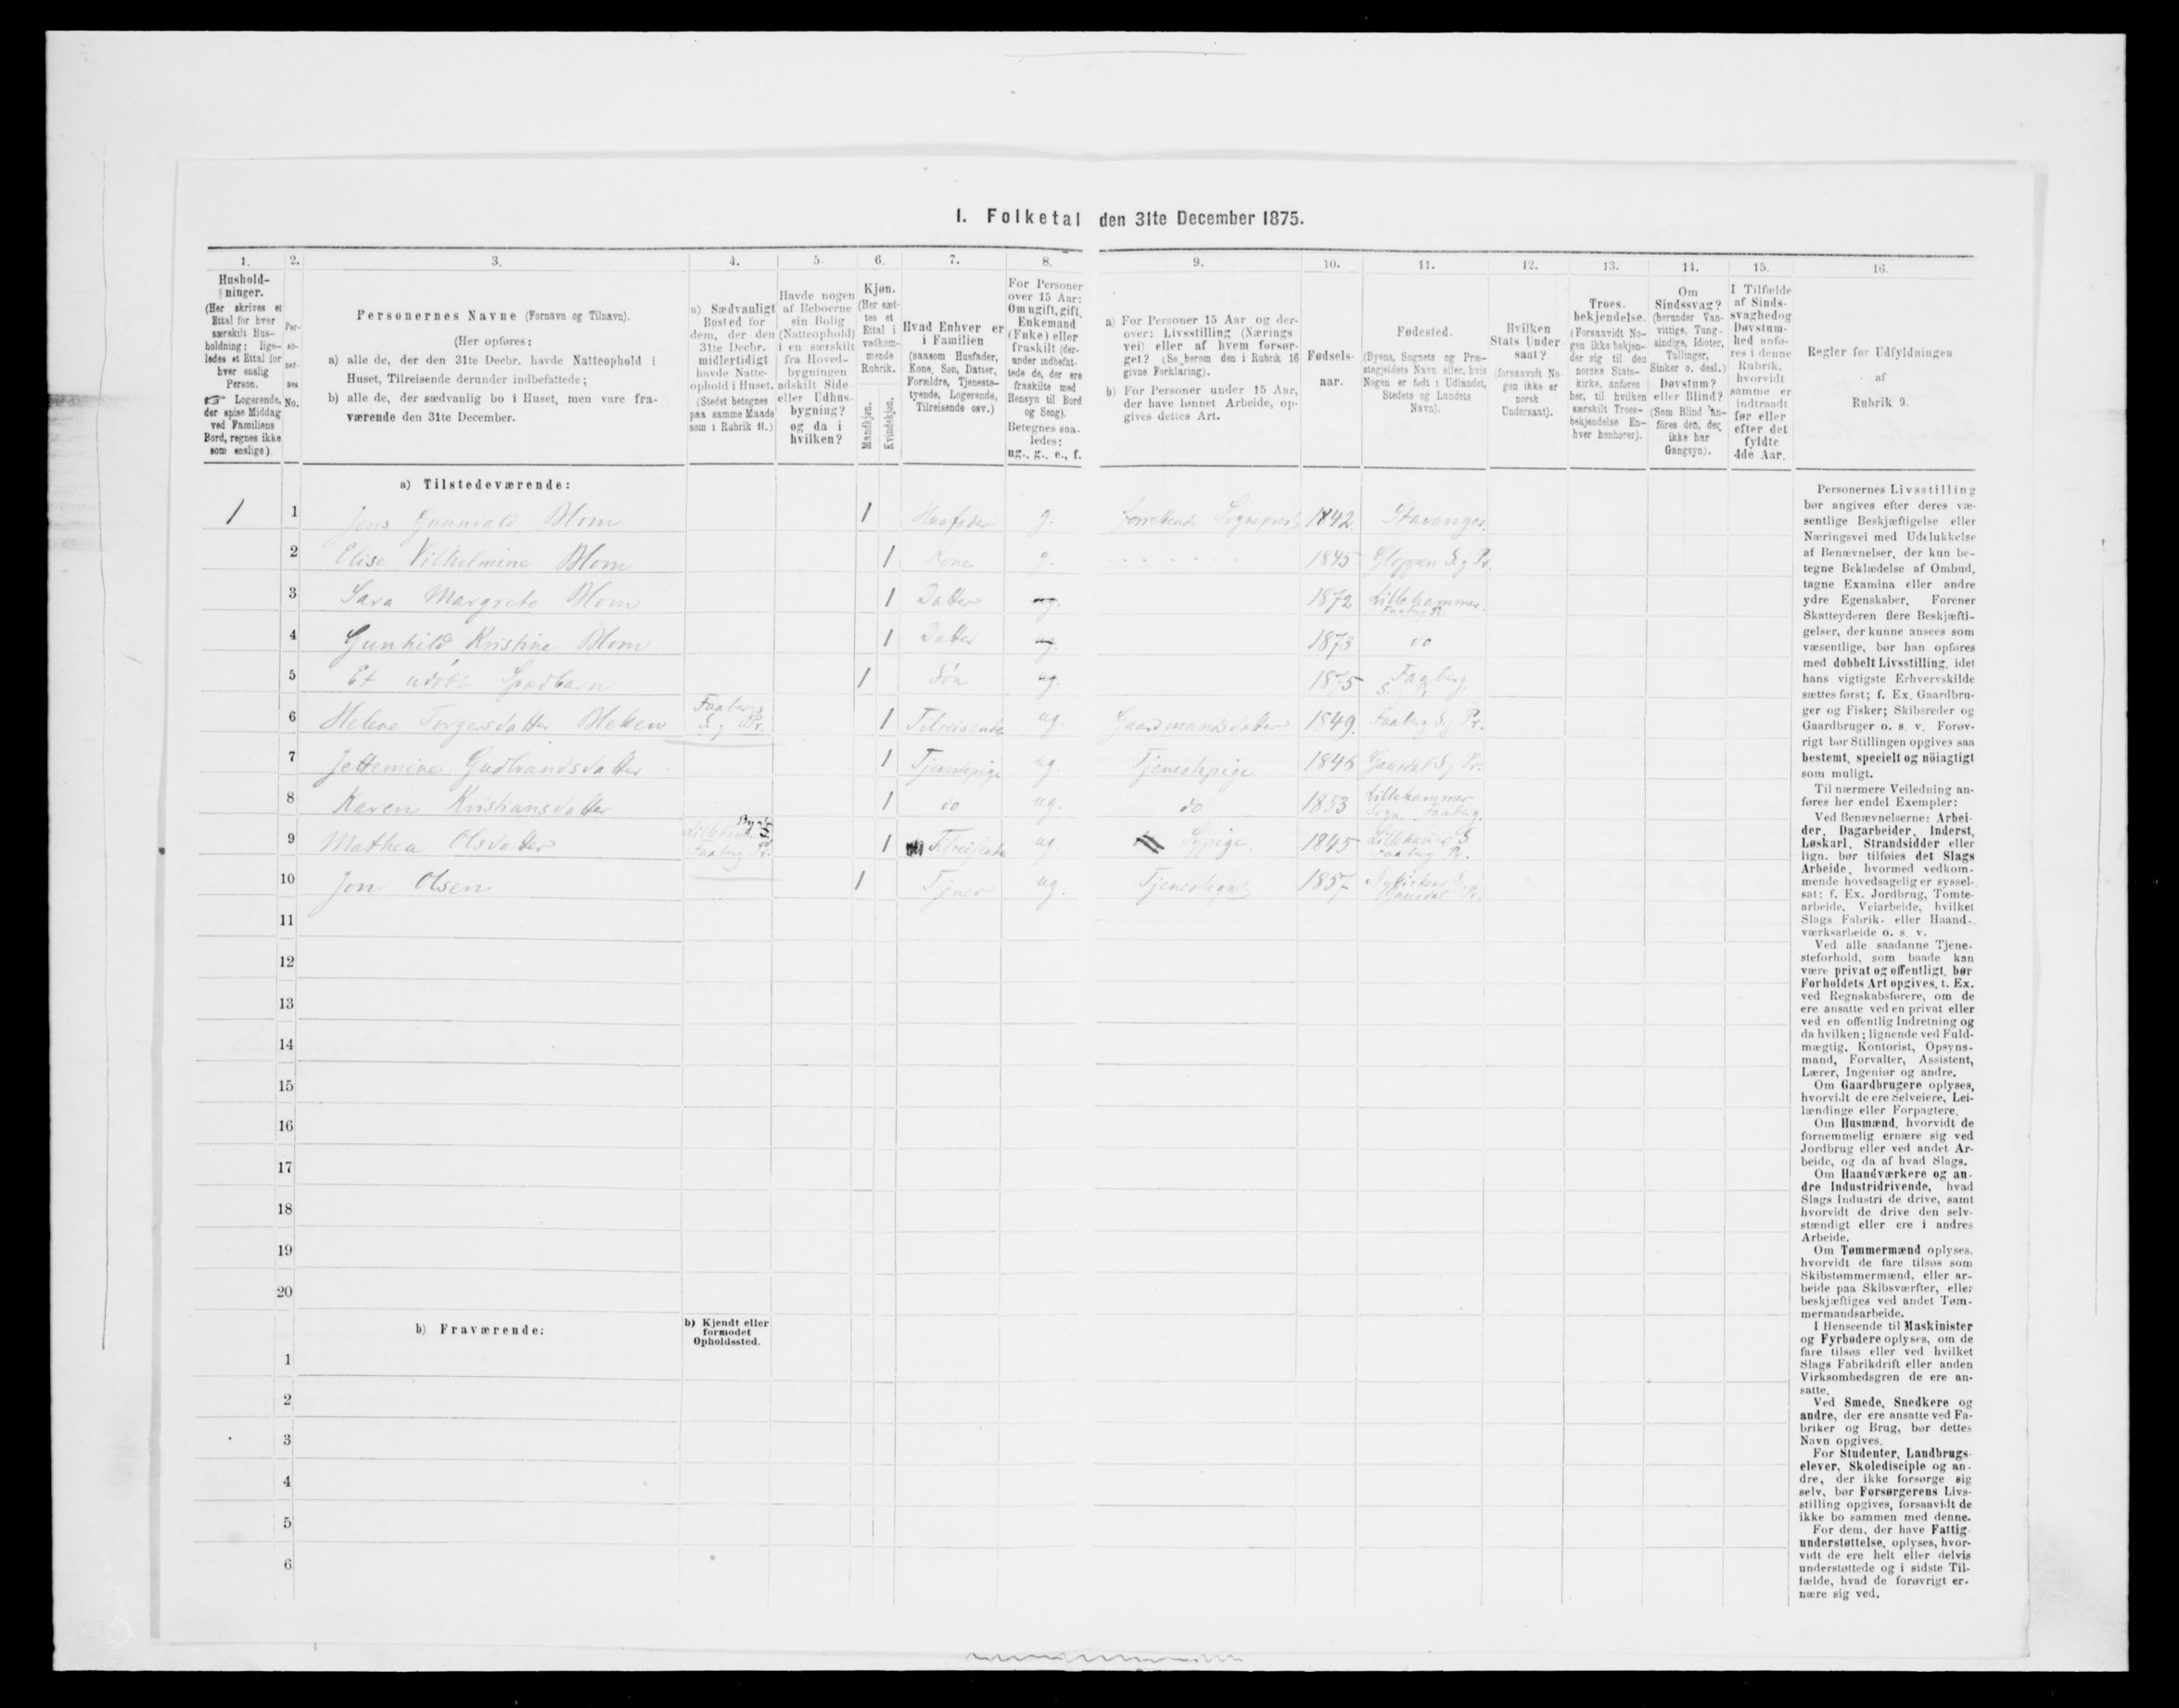 I. Folketal den 31te December 1875.
1.
Hushold-
ninger.
(Her skrives et
Ettal for hver
særskilt Hus-
holdning; lige-
ledes et Ettal for
hver enslig
Person.
☞ Logerende,
der spise Middag
ved Familiens
Bord, regnes ikke
som enslige)
2.
Per-
so-
ner-
nes
No.
3.
Personernes Navne (Fornavn og Tilnavn).
(Her opføres:
a) alle de, der den 31te Decbr. havde Natteophold i
Huset, Tilreisende derunder indbefattede;
b) alle de, der sædvanlig bo i Huset, men vare fra-
værende den 31te December.
4.
a) Sædvanligt
Bosted for
dem, der den
31te Decbr.
midlertidigt
havde Natte-
ophold i Huset.
(Stedet betegnes
paa samme Maade
som i Rubrik 11.)
5.
Havde nogen
af Beboerne
sin Bolig
(Natteophold)
i en særskilt
fra Hoved-
bygningen
adskilt Side-
eller Udhus-
bygning?
og da i
hvilken?
6.
Kjøn.
(Her sæt-
tes et
Ettal i
vedkom-
mende
Rubrik.
Mandkjøn.
Kvindekjøn.
7.
Hvad Enhver er
i Familien
(saasom Husfader,
Kone, Søn, Datter,
Forældre, Tjeneste-
tyende, Logerende,
Tilreisende osv.)
8.
For Personer
over 15 Aar:
Om ugift, gift,
Enkemand
(Enke) eller
fraskilt (der-
under indbefat-
tede de, der ere
fraskilte med
Hensyn til Bord
og Seng).
Betegnes saa-
ledes:
ug., g., e., f.
9.
a) For Personer 15 Aar og der-
over: Livsstilling (Nærings
vei) eller af hvem forsør-
get? (Se herom den i Rubrik 16
givne Forklaring).
b) For Personer under 15 Aar,
der have lønnet Arbeide, op-
gives dettes Art.
10.
Fødsels-
aar.
11.
Fødested.
(Byens, Sognets og Præ-
stegjeldets Navn eller, hvis
Nogen er født i Udlandet,
Stedets og Landets
Navn).
12.
Hvilken
Stats Under
saat?
(forsaavidt No-
gen ikke er
norsk
Undersaat).
13.
Troes.
bekjendelse.
(Forsaavidt No-
gen ikke bekjen-
der sig til den
norske Stats-
kirke, anføres
her, til hvilken
særskilt Troes-
bekjendelse En-
hver henhører).
14.
Om
Sindssvag?
(herunder Van-
vittige, Tung-
sindige, Idioter,
Tullinger,
Sinker o. desl.)
Døvstum?
eller Blind?
(Som Blind an-
føres den, der
ikke har
Gangsyn).
15.
I Tilfælde
af Sinds-
svaghed og
Døvstum-
hed anfø-
res i denne
Rubrik,
hvorvidt
samme er
indtraadt
før eller
efter det
fyldte
4de Aar.
16.
Regler for Udfyldningen
af
Rubrik 9.
a) Tilstedeværende:
1 1 Jens Gunnvald Blom 1 Husfader g. Sognepræst 1842. Stavanger.
2 Elise Vilhelmine Blom 1 Kone g. 1845 Gloppen S. g Pr.
3 Sara Margrete Blom 1 Datter ug. 1872 Lillehammer.
Faaberg Pr.
4 Gunhild Kristine Blom 1 Datter ug. 1873 do
5 Et udøbt Spædbarn 1 Søn ug. 1875 Faaberg
S. Pr.
6 Helene Torgersdatter Faabergs
S. g Pr. 1 Tilreisende ug. Gaardmandsdatter 1849. Faaberg S. g Pr.
7 Jettemine Gudbrandsdatter 1 Tjenestepige ug. Tjenestepige 1846 Gausdal S. g Pr.
8 Karen Kristiansdatter 1 do ug. do 1853 Lillehammer
Sogn Faaberg.
9 Mathea Olsdatter Lillehammer
Faaberg Pr. 1 Tilreisende ug. Sypige. 1845 Lillehammer S
Faaberg Pr.
10 Jon Olsen 1 Tjener ug. 1857 Nykirkens S.
Gausdal Pr.
11
12
13
14
15
16
17
18
19
20
b) Fraværende:
b) Kjendt eller
formodet
Opholdssted.
1
2
3
4
5
6
Personernes Livsstilling
bør angives efter deres væ-
sentlige Beskjæftigelse eller
Næringsvei med Udelukkelse
af Benævnelser, der kun be-
tegne Beklædelse af Ombud,
tagne Examina eller andre
ydre Egenskaber. Forener
Skatteyderen flere Beskjæfti-
gelser, der kunne ansees som
væsentlige, bør han opføres
med dobbelt Livsstilling, idet
hans vigtigste Erhvervskilde
sættes først; f. Ex. Gaardbru-
ger og Fisker; Skibsreder og
Gaardbruger o. s. v. Forøv-
rigt bør Stillingen opgives saa
bestemt, specielt og nöiagtigt
som muligt.
Til nærmere Veiledning an-
føres her endel Exempler:
Ved Benævnelserne: Arbei-
der, Dagarbeider, Inderst,
Løskarl, Strandsidder eller
lign. bør tilføies det Slags
Arbeide, hvormed vedkom-
mende hovedsagelig er syssel-
sat; f. Ex. Jordbrug, Tomte-
arbeide, Veiarbeide, hvilket
Slags Fabrik- eller Haand-
værksarbeide o. s. v.
Ved alle saadanne Tjene-
steforhold, som baade kan
være privat og offentligt, bør
Forholdets Art opgives, t. Ex.
ved Regnskabsførere, om de
ere ansatte ved en privat eller
ved en offentlig Indretning og
da hvilken; lignende ved Fuld-
mægtig, Kontorist, Opsyns-
mand, Forvalter, Assistent,
Lærer, Ingeniør og andre.
Om Gaardbrugere oplyses,
hvorvidt de ere Selveiere, Lei-
lændinge eller Forpagtere.
Om Husmænd, hvorvidt de
fornemmelig ernære sig ved
Jordbrug eller ved andet Ar-
beide, og da af hvad Slags.
Om Haandværkere og an-
dre Industridrivende, hvad
Slags Industri de drive, samt
hvorvidt de drive den selv-
stændigt eller ere i andres
Arbeide.
Om Tømmermænd oplyses,
hvorvidt de fare tilsøs som
Skibstømmermænd, eller ar-
beide paa Skibsværfter, eller
beskjæftiges ved andet Tøm-
mermandsarbeide.
I Henseende til Maskinister
og Fyrbødere oplyses, om de
fare tilsøs eller ved hvilket
Slags Fabrikdrift eller anden
Virksomhedsgren de ere an-
satte.
Ved Smede, Snedkere og
andre, der ere ansatte ved Fa-
briker og Brug, bør dettes
Navn opgives.
For Studenter, Landbrugs-
elever, Skoledisciple og an-
dre, der ikke forsørge sig
selv, bør Forsørgerens Livs-
stilling opgives, forsaavidt de
ikke bo sammen med denne.
For dem, der have Fattig-
understøttelse, oplyses, hvor-
vidt de ere helt eller delvis
understøttede og i sidste Til-
fælde, hvad de forøvrigt er-
nære sig ved.